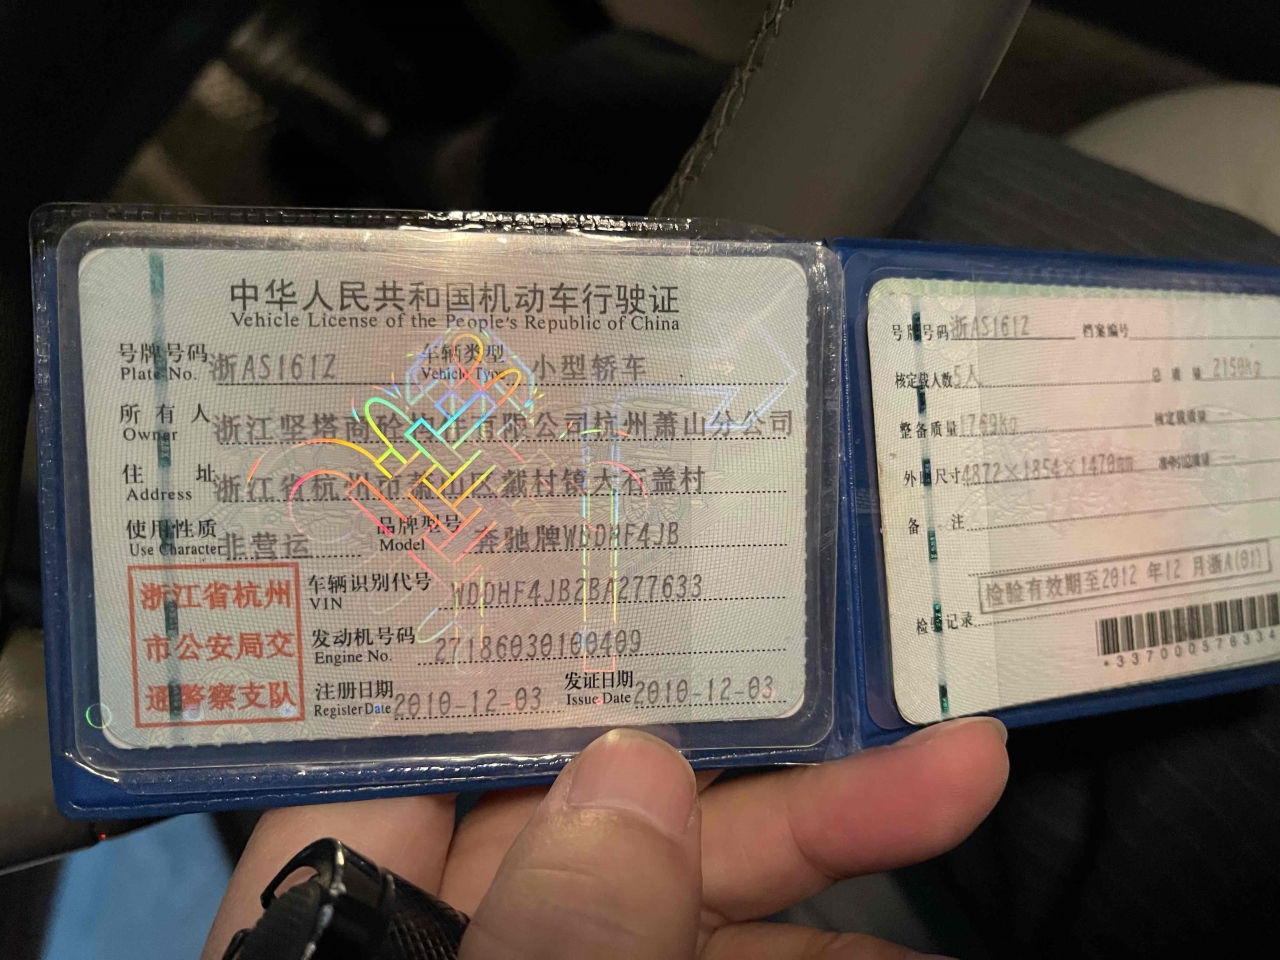 中华人民共和国机动车行驶证
Vehicle License of the People's Republic of China
号牌号码 浙AS161Z 车辆类型 小型轿车
Plate No. Vehicle Type
所有人 浙江坚塔商砼 有限公司杭州萧山分公司
Owner
住址 浙江省杭州市萧山区戴村镇大石盖村
Address
使用性质 非营运 品牌型号 奔驰牌WDDHF4JB
Use Character Model
浙江省杭州
市公安局交
通警察支队
车辆识别代号 WDDHF4JB2BA277633
VIN
发动机号码 27186030100409
Engine No.
注册日期 2010-12-03 发证日期 2010-12-03
Register Date Issue Date
号牌号码 浙AS161Z 档案编号
核定载人数 5人 总质量 2150kg
整备质量 1769kg 核定载质量
外廓尺寸 4872×1854×1470mm 准牵引总质量
备注
检验有效期至2012年12月浙A(01)
检验记录
*337000576334